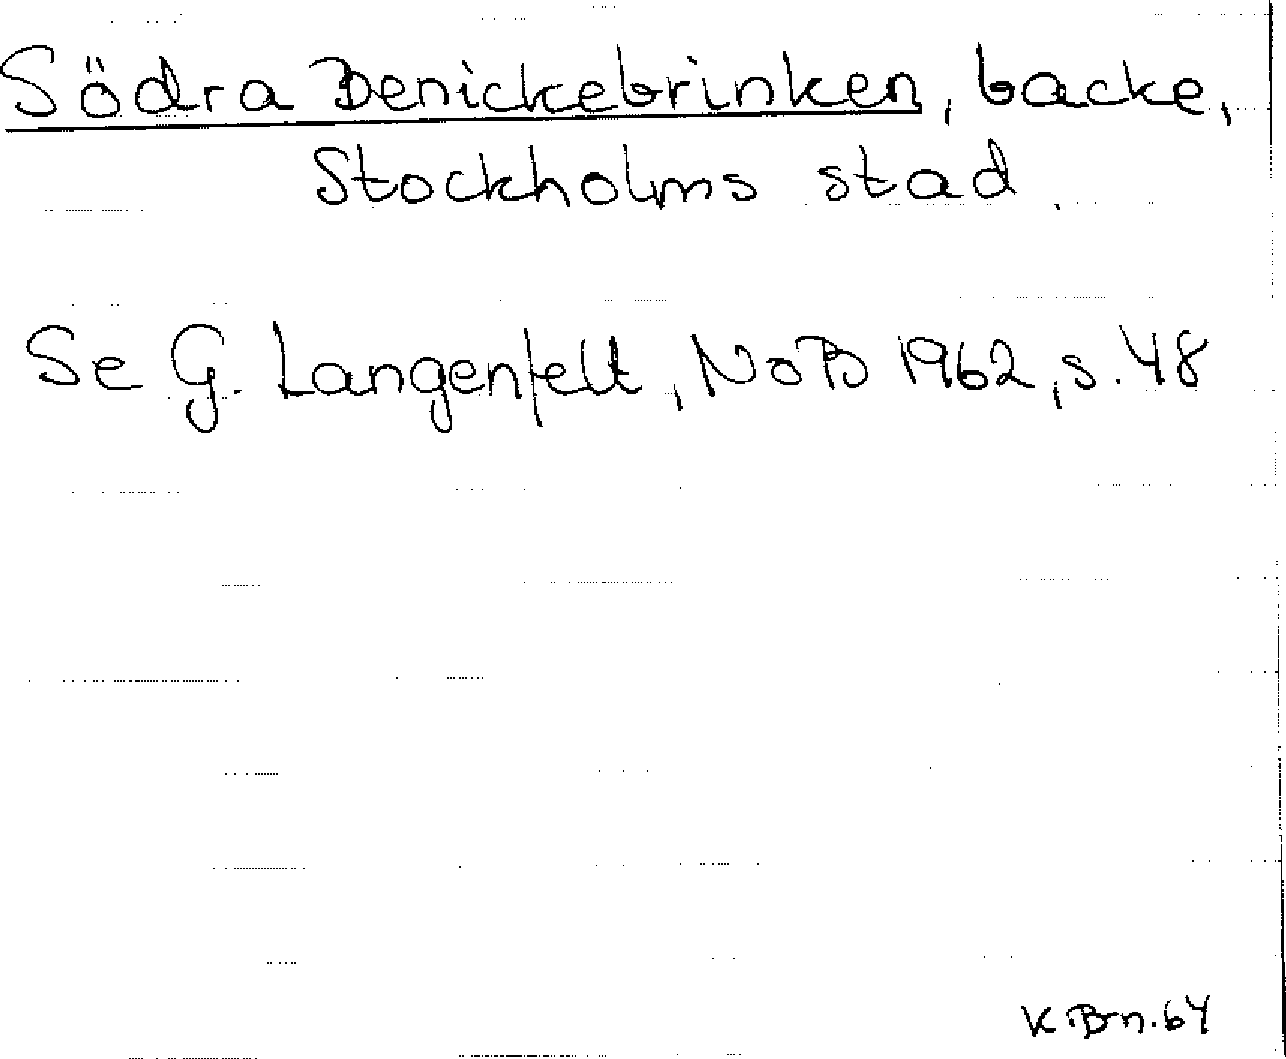 Södra Benickebrinken, backe,
Stockholms stad.
Se G. Langenfelt, NoB 1962, s. 48
K Brn. 64